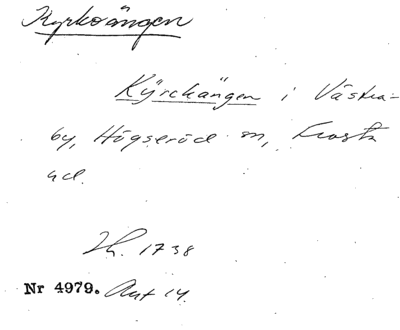 Kyrkoängen
Kÿrckängen i Västra-
by, Högseröd sn, Frosta
hd.
Lh. 1738
Nr 4979. Ant 14.